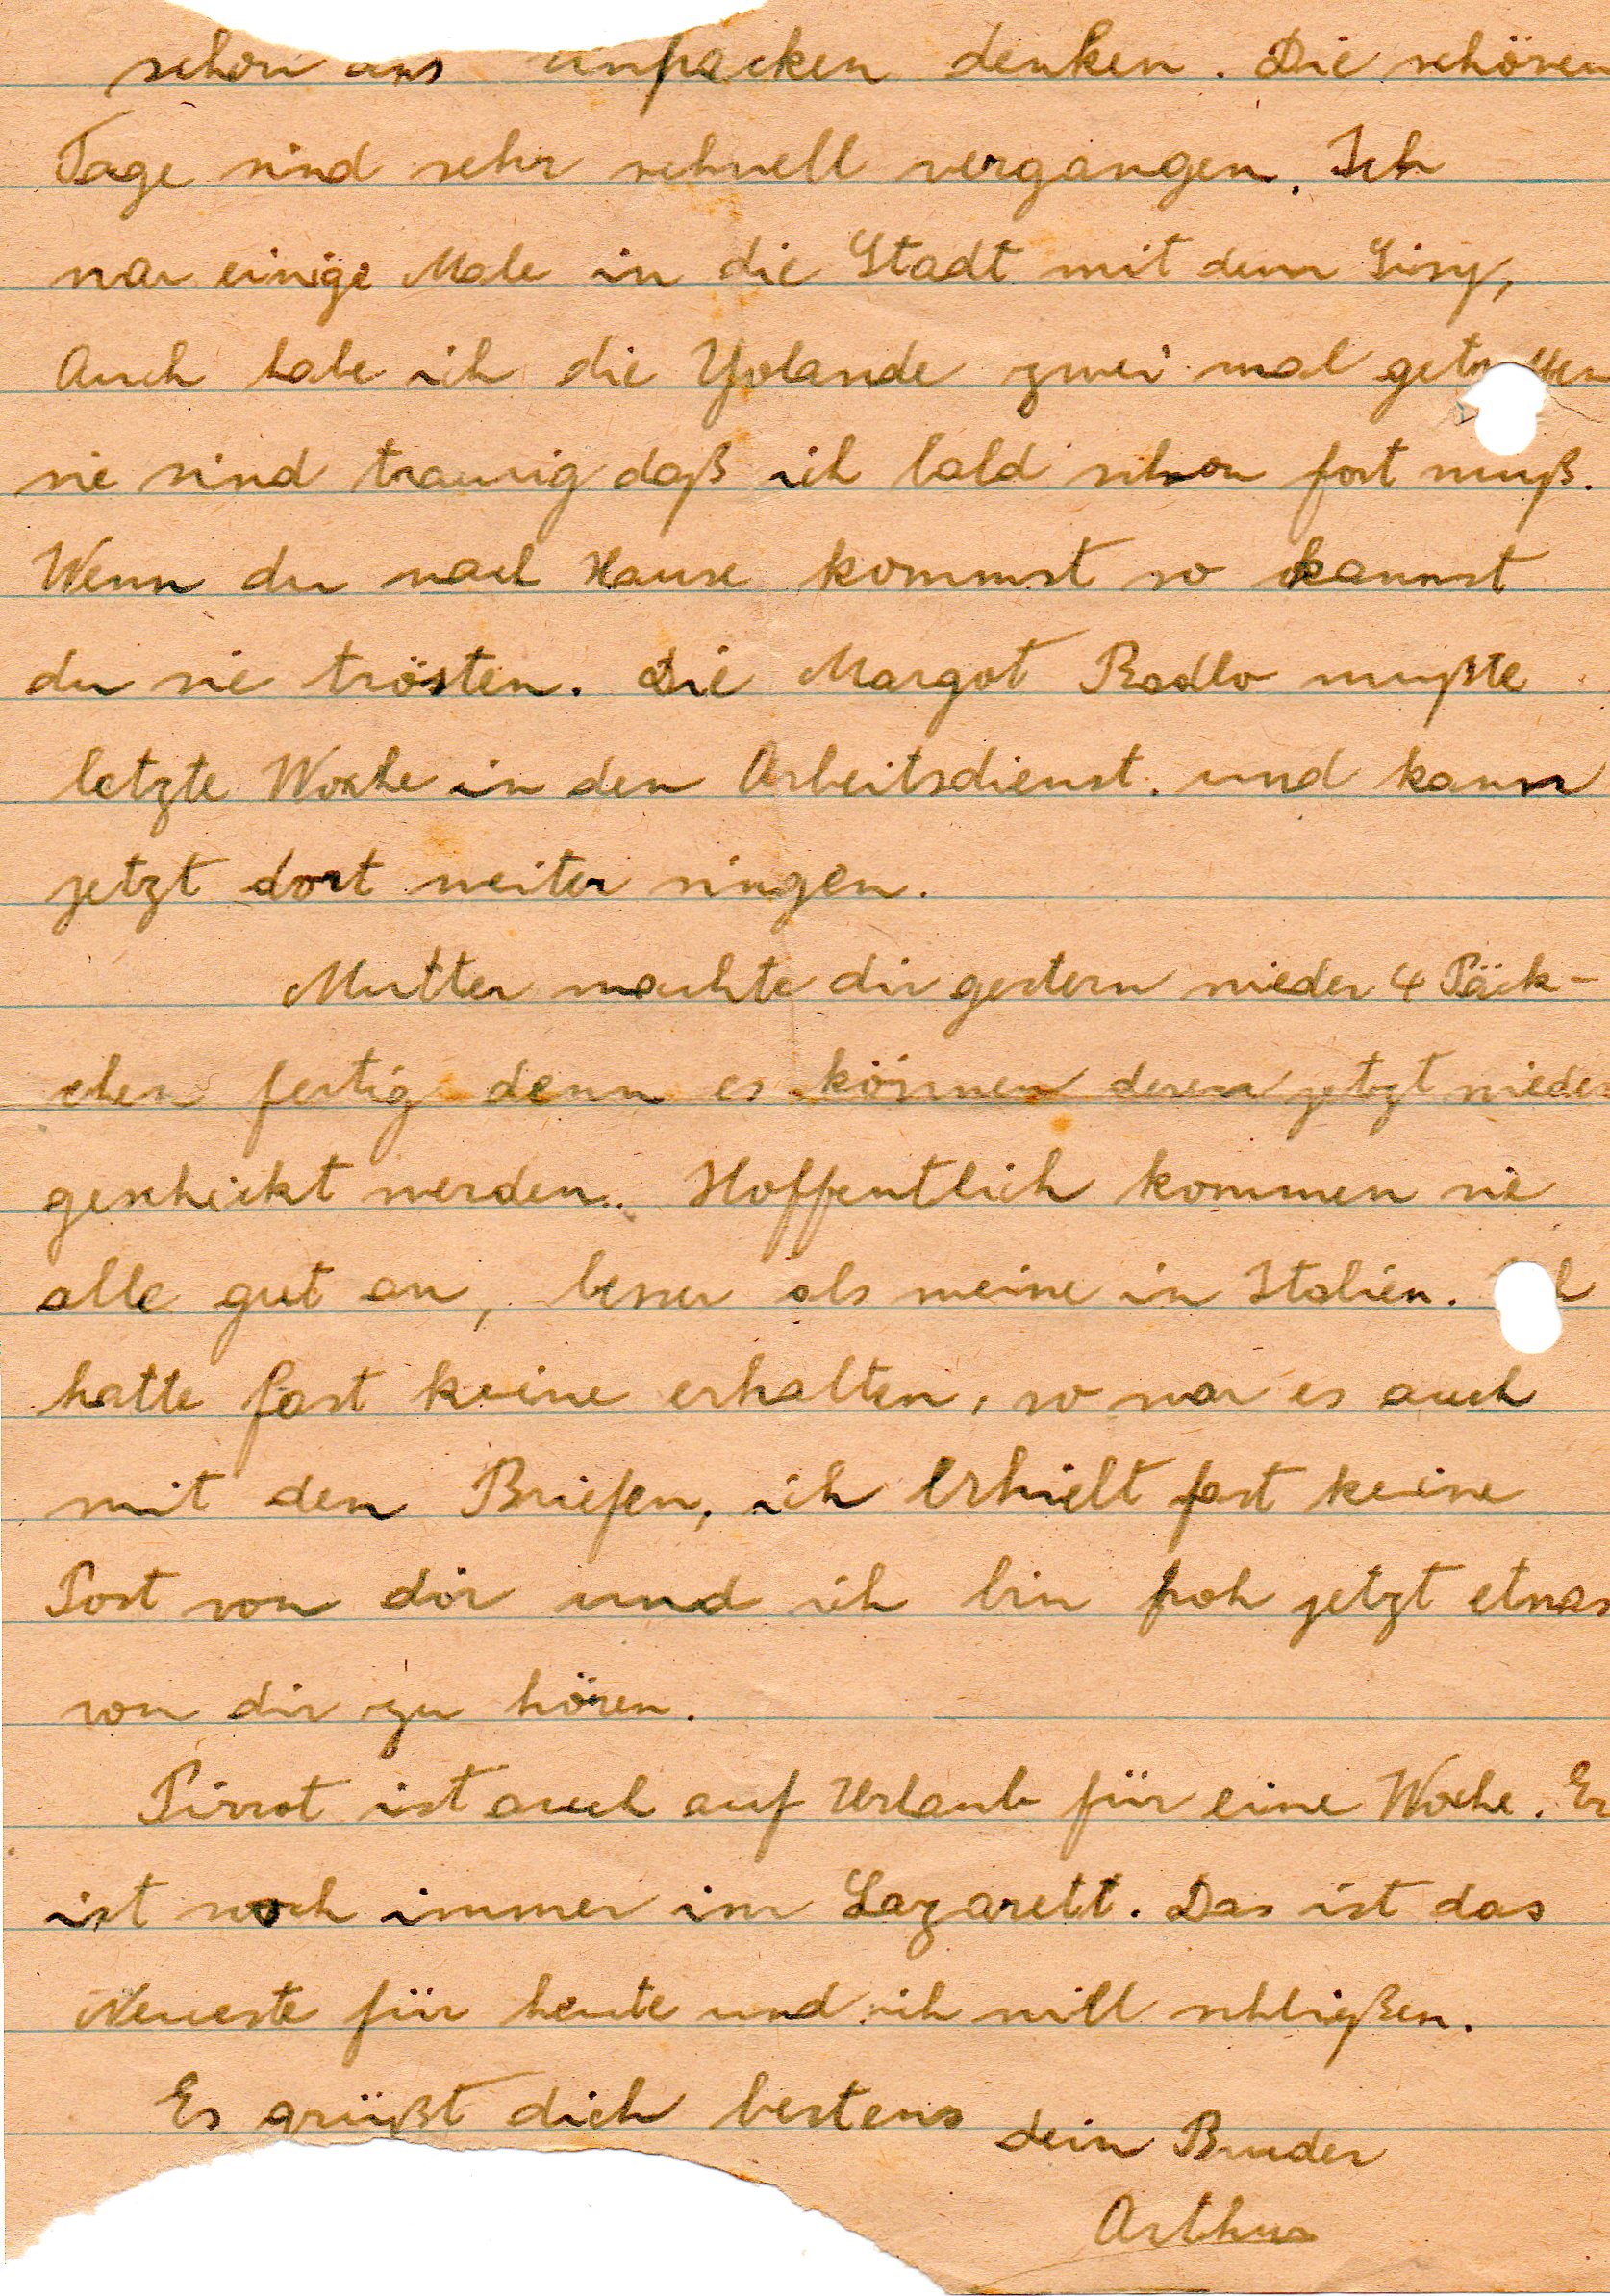 schon ans einpacken denken. Die schönen
Tage sind sehr schnell vergangen. Ich
war einige Male in die Stadt mit dem
Auch habe ich die Yolande zwei mal getroffen
sie sind traurig daß ich bald schon fort muß.
Wenn du nach Hause kommst so kannst
du sie trösten. Die Margot mußte
letzte Woche in den Arbeitsdienst. und kann
jetzt dort weiter singen.
Mutter machte dir gestern wieder 4 Päck-
chen fertig denn es können deren jetzt wieder
geschickt werden. Hoffentlich kommen sie
alle gut an, besser als meine in Italien. Ich
hatte fast keine erhalten, so war es auch
mit den Briefen, ich erhielt fast keine
Post von dir und ich bin froh jetzt etwas
von dir zu hören.
Pirrot ist auch auf Urlaub für eine Woche. Er
ist noch immer im Lazarett. Das ist das
Neueste für heute und ich will schließen.
Es grüßt dich bestens dein Bruder
Arthur